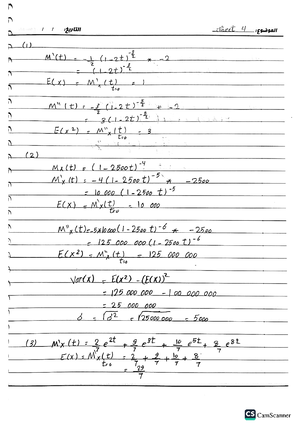 التاريخ: / / الموضوع: sheet 4
(1)
M'(t) = -1/2 (1-2t)^-3/2 * -2
= (1-2t)^-3/2
E(x) = M'x(t) t=0 = 1
M''(t) = -3/2 (1-2t)^-5/2 * -2
= 3(1-2t)^-5/2
E(x²) = M''x(t) t=0 = 3
(2)
Mx(t) = (1-2500t)^-4
M'x(t) = -4(1-2500t)^-5 * -2500
= 10 000 (1-2500t)^-5
E(X) = M'x(t) t=0 = 10 000
M''x(t) = -5x10000(1-2500t)^-6 * -2500
= 125 000 000 (1-2500t)^-6
E(X²) = M''x(t) t=0 = 125 000 000
Var(X) = E(X²) - (E(X))²
= 125 000 000 - 100 000 000
= 25 000 000
σ = √σ² = √25000000 = 5000
(3) M'x(t) = 2/7 e^2t + 9/7 e^3t + 10/7 e^5t + 8/7 e^8t
E(X) = M'x(t) t=0 = 2/7 + 9/7 + 10/7 + 8/7
= 29/7
CS CamScanner